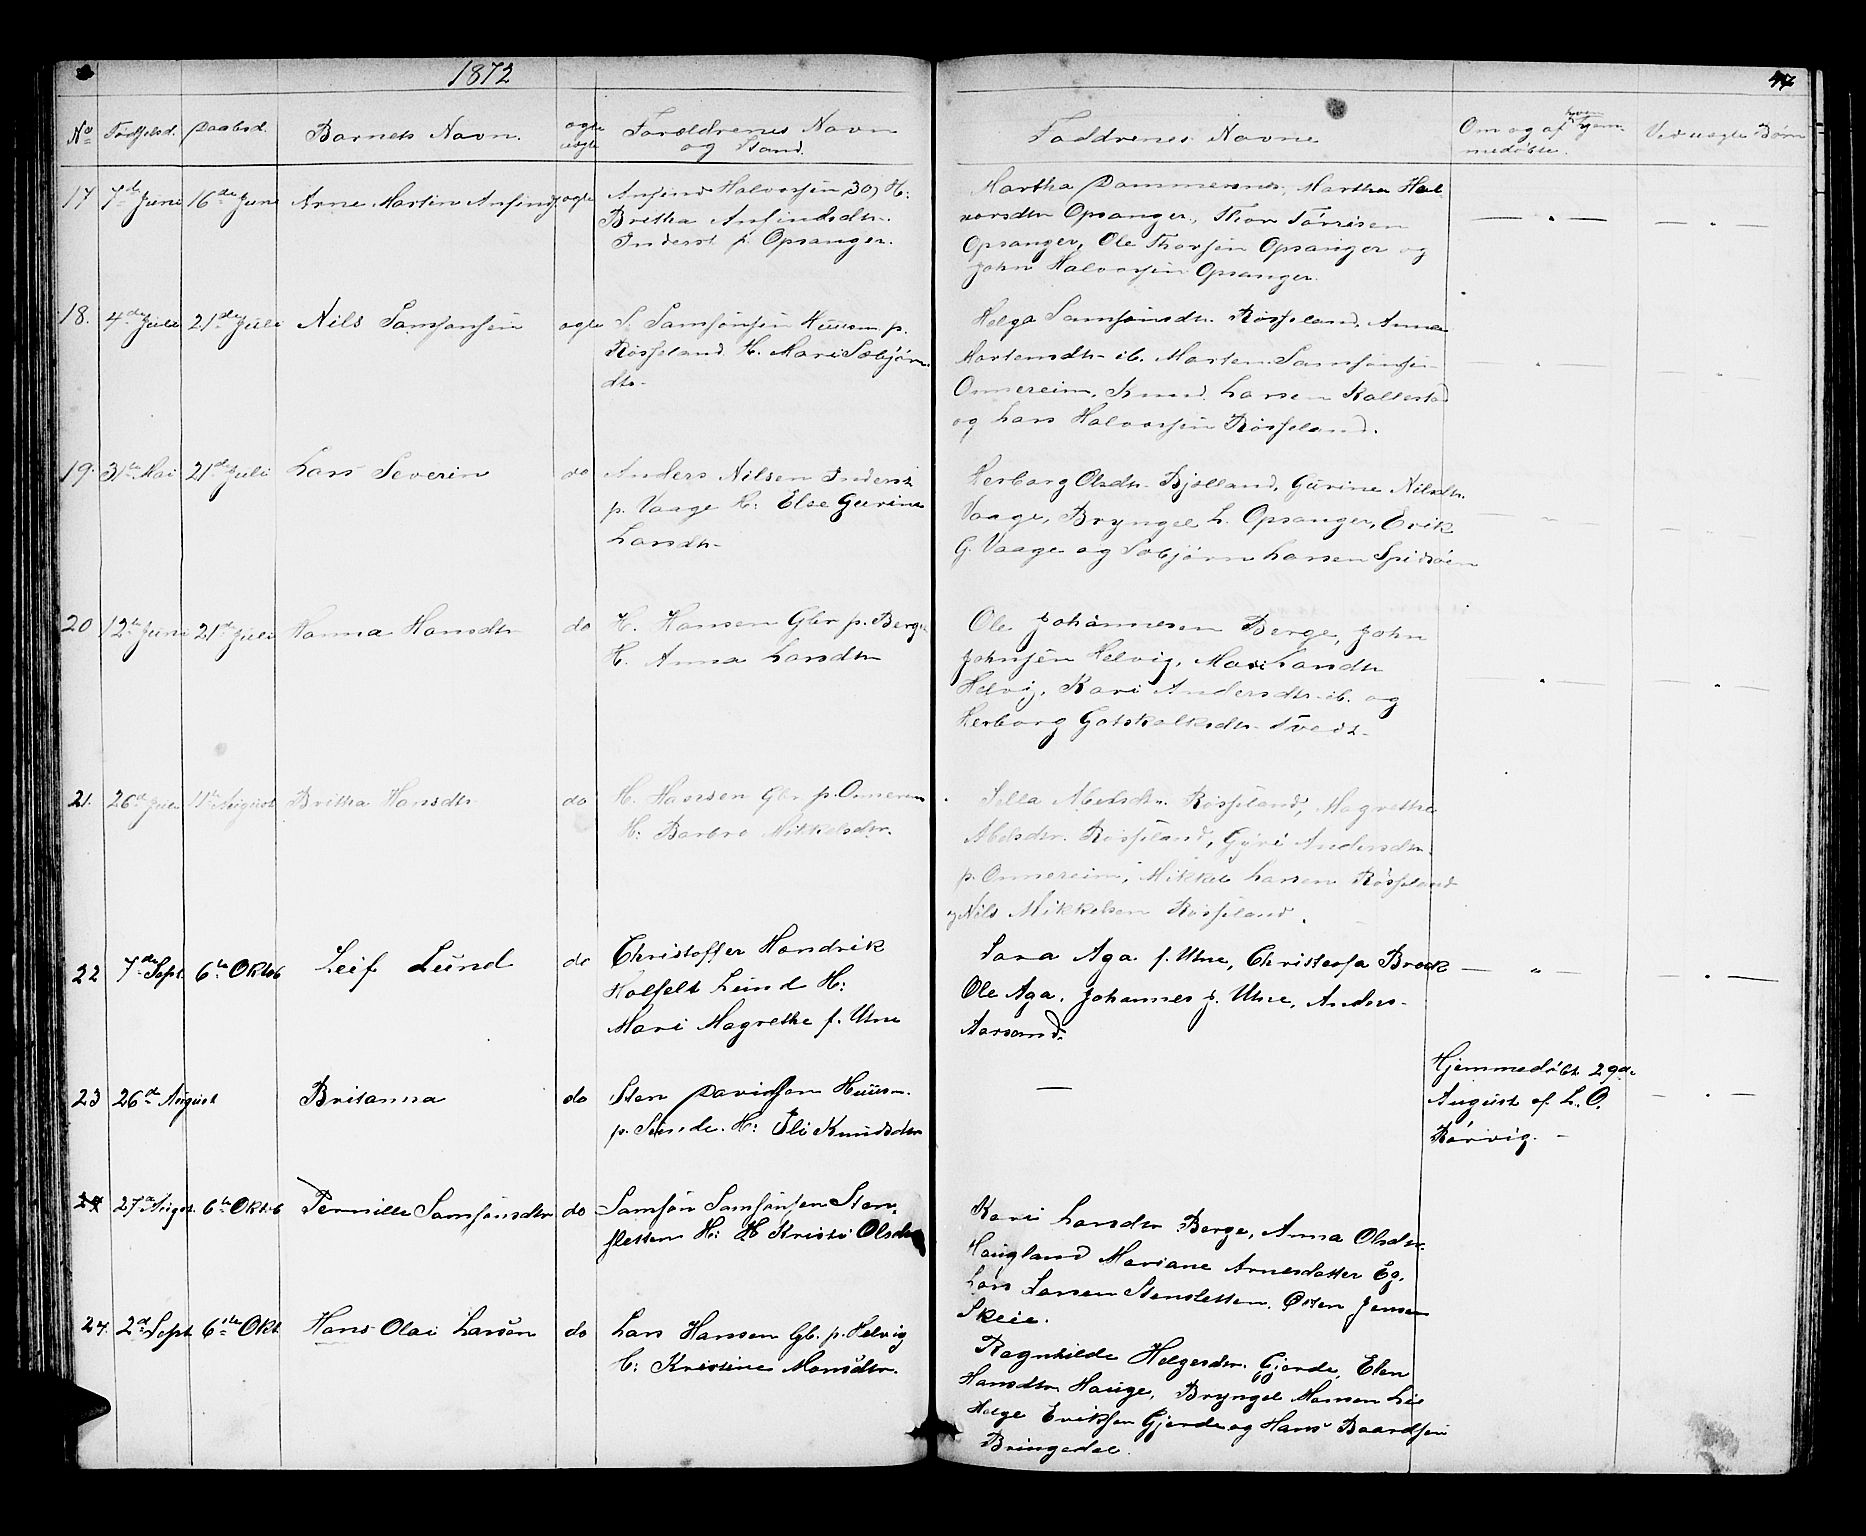 1872
47
No Fødselsd. Daabsd. Barnets Navn. ægte uægte Forældrenes Navn og Stand. Faddrenes Navne Om og af hvem hjem medøbte. Ved uægte Børn
17 7de Juni 16de Juni Arne Martin Anfinds. ægte
Anfind Halvorsen 30, H:
Britha Anfindsdtr.
Inderst p. Opsanger.
Martha Dammesnes, Martha Hal
vorsdtr Opsanger, Thor Tørrisen
Opsanger, Ole Thorsen Opsanger og
John Halvorsen Opsanger.
18. 4de Juli 21de Juli Nils Samsonsen ægte
S. Samsonsen Huusm. p.
Røsseland H. Mari Sæbjørns
dtr.
Helga Samsonsdtr. Røsseland, Anna
Mortensdtr ib. Morten Samsonsen
Omereim, Knud Larsen Kallestad
og Lars Halvorsen Røsseland.
19. 31te Mai 21de Juli Lars Severin do
Anders Nilsen Inderst
p. Vaage H: Else Gurine
Larsdtr.
Herborg Olsdtr. Bjelland, Gurine Nilsdtr.
Vaage, Bryngel L. Opsanger, Erik
G. Vaage og Sæbjørn Larsen Spidsøen
20 12te Juni 21de Juli Hanna Hansdtr do
H. Hansen Gbr p. Berge
H. Anna Larsdtr
Ole Johannesen Berge, John
Johnsen Helvig, Mari Larsdtr
Helvig, Kari Andersdtr. ib. og
Herborg Gotskalksdtr. Tveit.
21. 26de Juli 11te August Britha Hansdtr do
H. Hansen Gbr p. Omereim
H: Barbro Mikkelsdtr.
Sella Abelsdtr. Røsseland, Magrethe
Abelsdtr. Røsseland, Gyri Andersdtr.
p. Omereim, Mikkel Larsen Røsseland
og Nils Mikkelsen Røsseland.
22 7de Sept 6te Oktob Leif Lund do
Christoffer Hendrik
Holfelt Lund H:
Mari Magrethe f. Utne
Sara Aga f. Utne, Christensa Brock
Ole Aga, Johannes J. Utne, Anders
Aarsand.
23 26de August Britanna do
Sten Davidsen Huusm.
p. Sunde. H: Eli Knudsdtr
—
Hjemmedøbt 29de
August af L. O.
Rørvig. -
24 27de August. 6te Oktob Pernille Samsonsdtr do
Samson Samsonsen Sten,
sletten H: H Kristi Olsdtr
Kari Larsdtr Berge, Anna Olsdtr.
Haugland Mariane Arnesdatter Eg.
Lars Larsen Stensletten. Østen Jensen
Skeie.
24. 2de Sept 6te Okt. Hans Olai Larsen do
Lars Hansen Gb. p. Helvig
H: Kristine Monsdtr.
Ragnhilde Helgesdtr. Gjerde, Elen
Hansdtr Hauge, Bryngel Hansen Lie
Helge Eriksen Gjerde og Hans Baardsen
Bringedal.